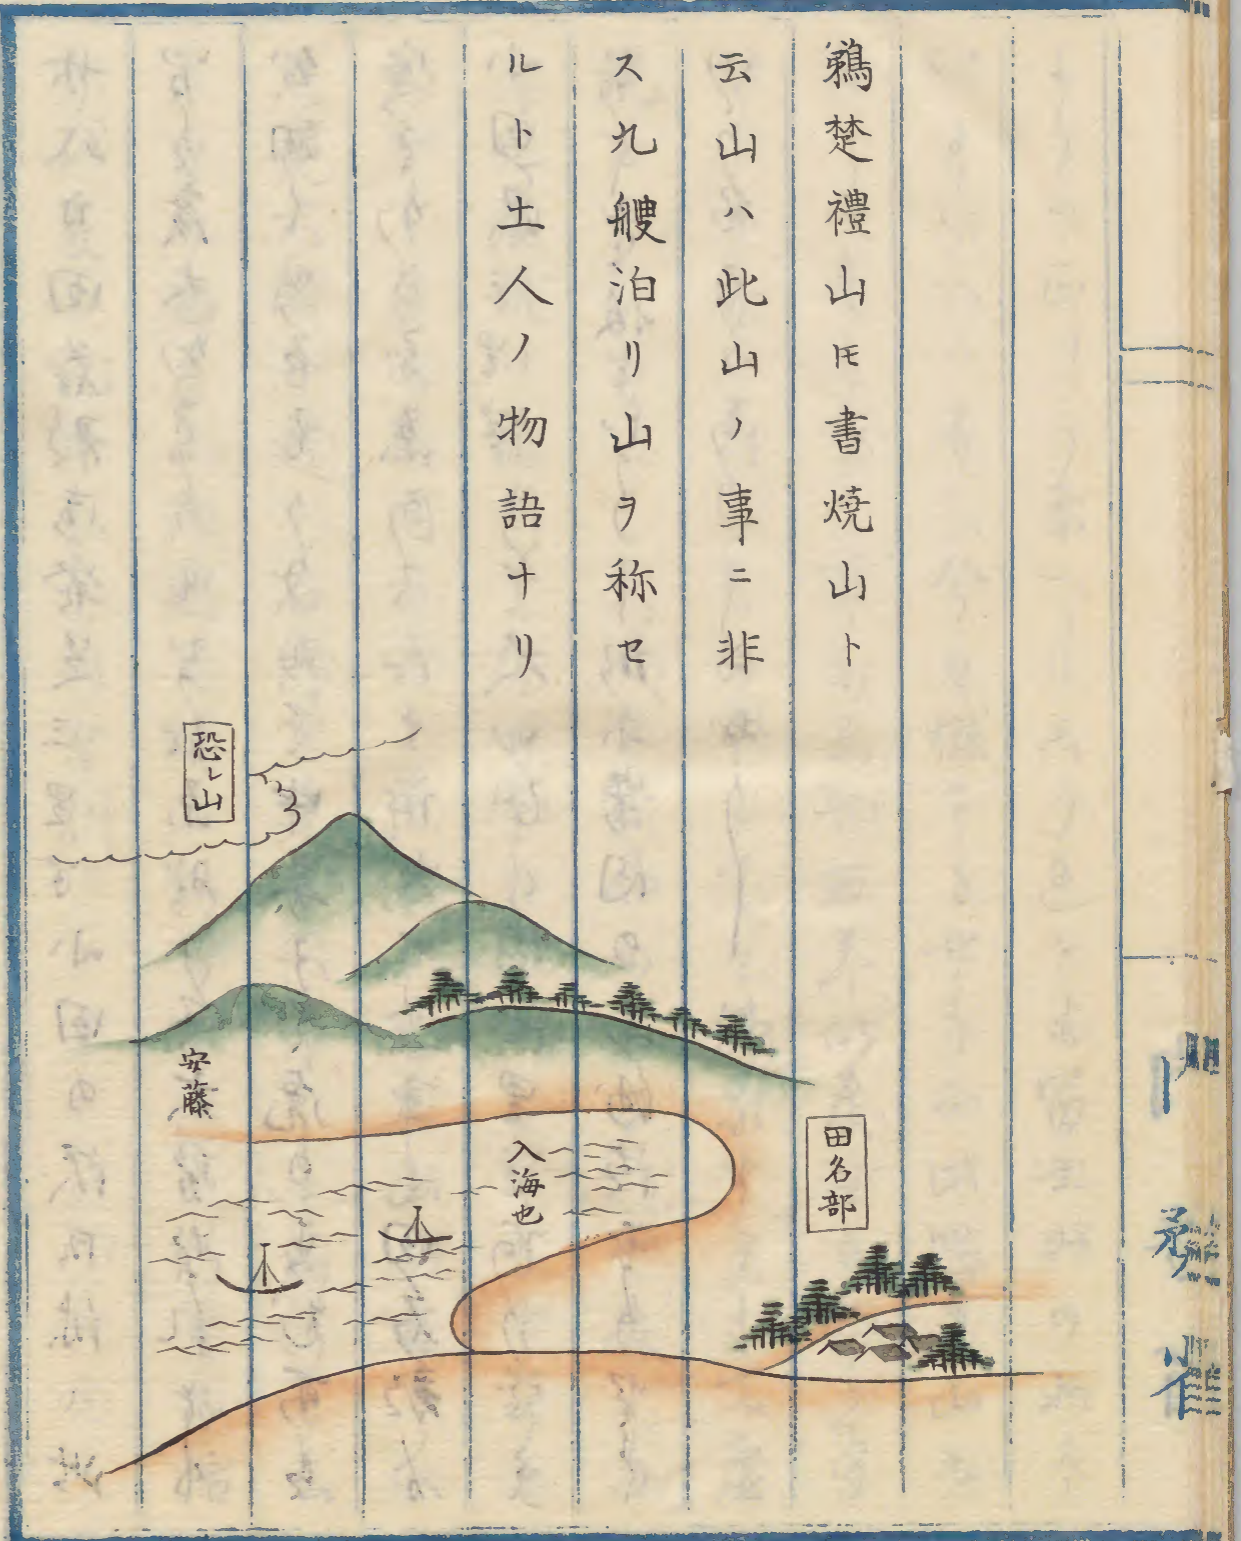 鵜楚禮山𪜈書焼山ト
云山ハ此山ノ事ニ非
ス九艘泊リ山ヲ称セ
ルト土人ノ物語ナリ
恐レ山
安藤
入海也
田名部